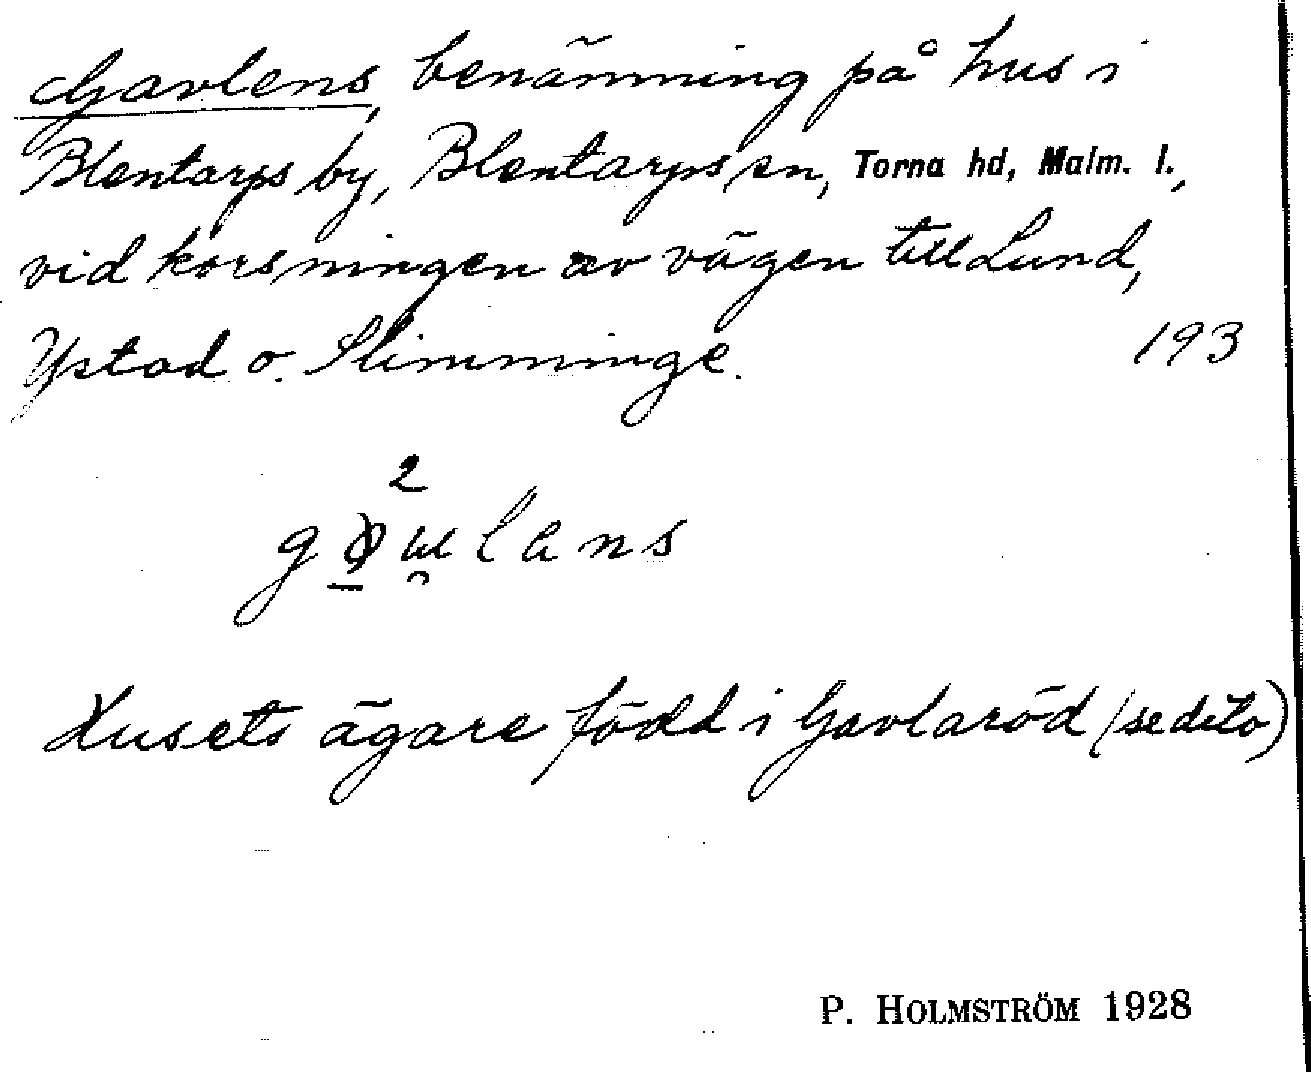 Gavlens, benämning på hus i
Blentarps by, Blentarps sn, Torna hd, Malm. l.,
vid korsningen av vägen till Lund,
Ystad o. Slimminge. 193
2
Husets ägare född i Gavlaröd (se dito)
P. HOLMSTRÖM 1928